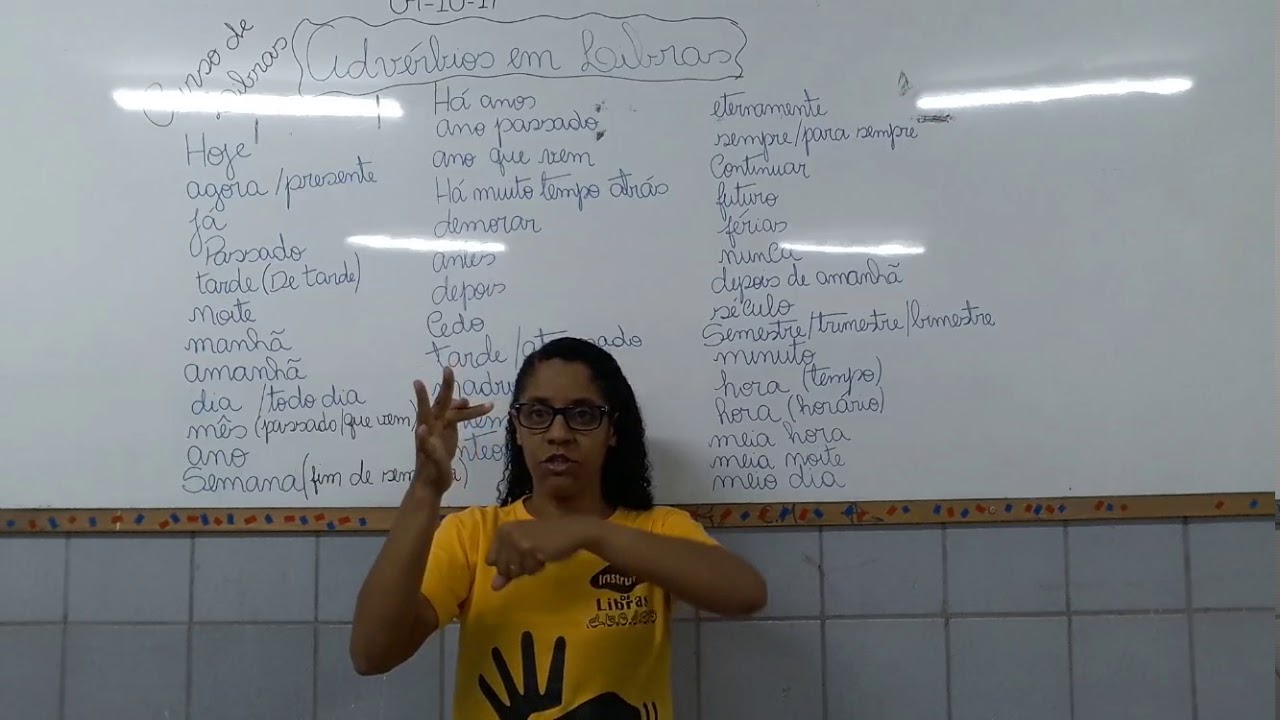 04-10-17
Curso de
Libras
Advérbios em Libras
Hoje
agora/presente
já
Passado
tarde (De tarde)
noite
manhã
amanhã
dia /todo dia
mês (passado/que vem)
ano
Semana (fim de
Há anos
ano passado
ano que vem
Há muito tempo atrás
demorar
antes
depois
Cedo
tarde /
eternamente
sempre/para sempre
Continuar
futuro
férias
nunca
depois de amanhã
século
Semestre/trimestre/bimestre
minuto
hora (tempo)
hora (horário)
meia hora
meia noite
meio dia
DE
Libras